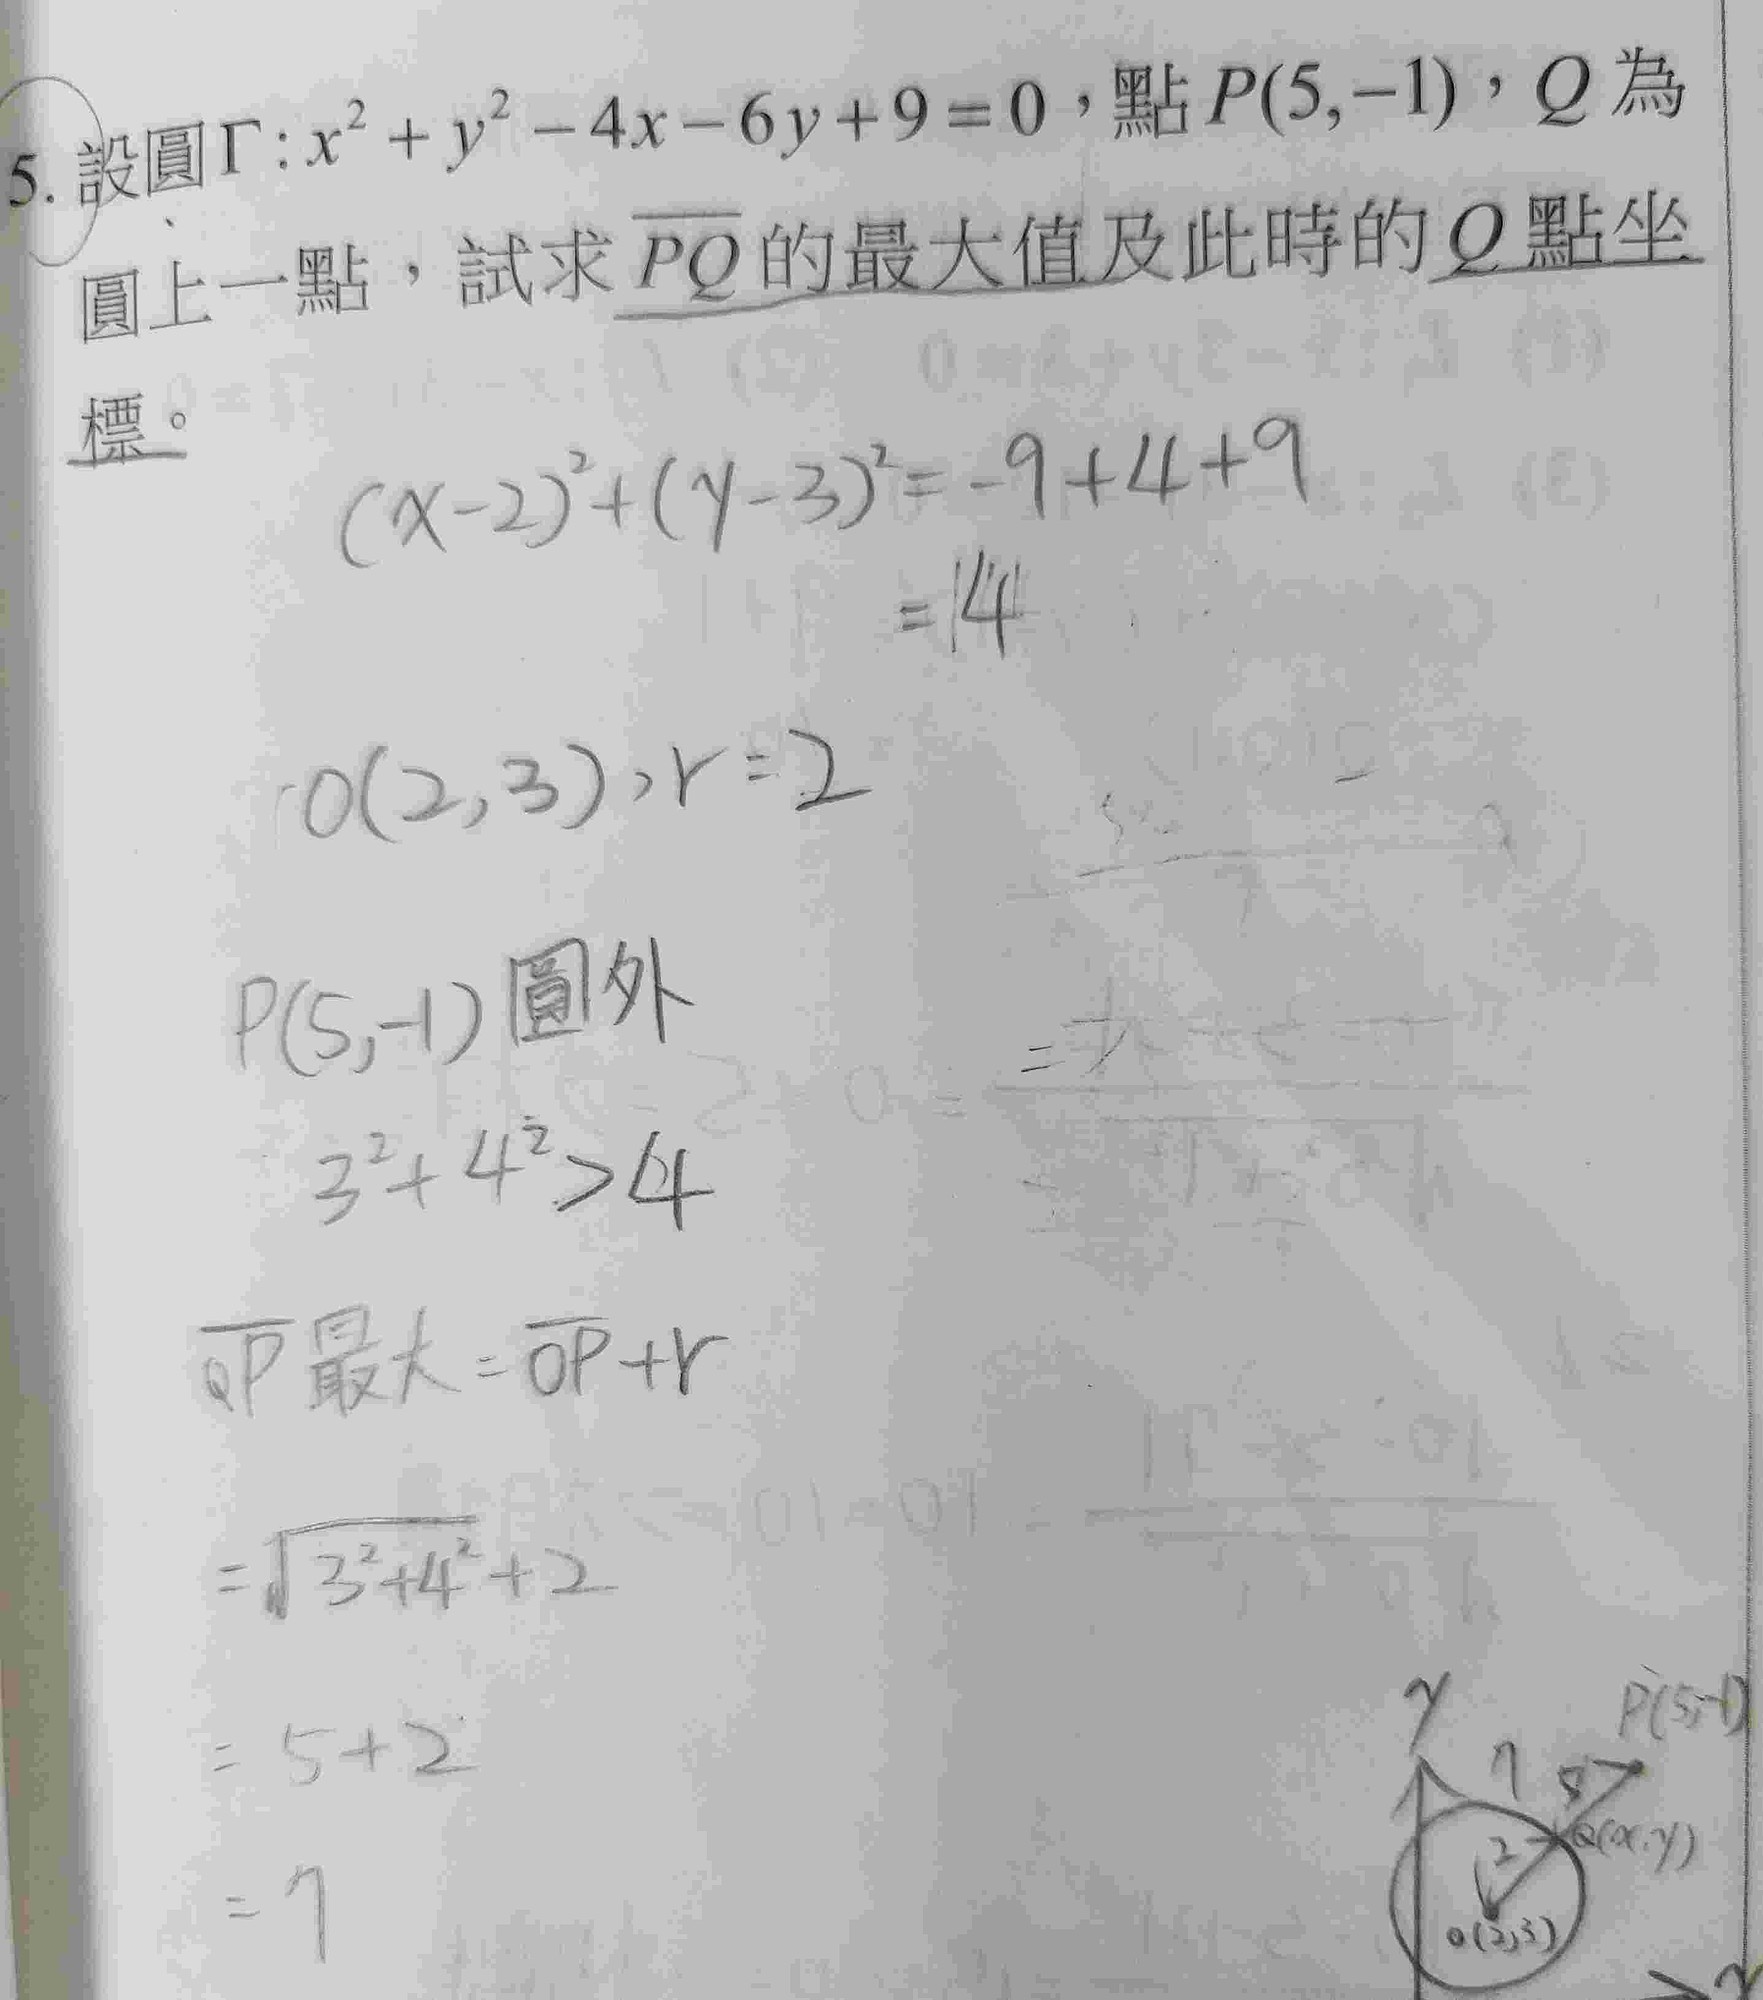 5. 設圓Γ:x²+y²-4x-6y+9=0,點P(5,-1),Q為
圓上一點,試求PQ的最大值及此時的Q點坐
標。
(x-2)²+(y-3)²=-9+4+9
=4
O(2,3),r=2
P(5,-1)圓外
3²+4²>4
QP最大=OP+r
=√3²+4²+2
=5+2
=7
y
P(5,-1)
7
5
Q(x,y)
2
O(2,3)
x